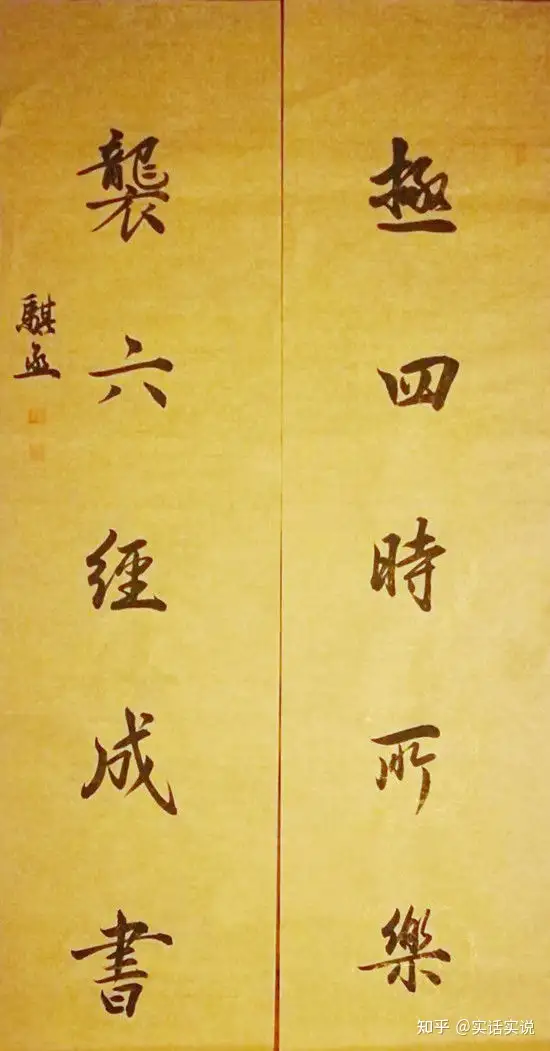 極四時所樂
襲六經成書
騏丞
知乎 @实话实说